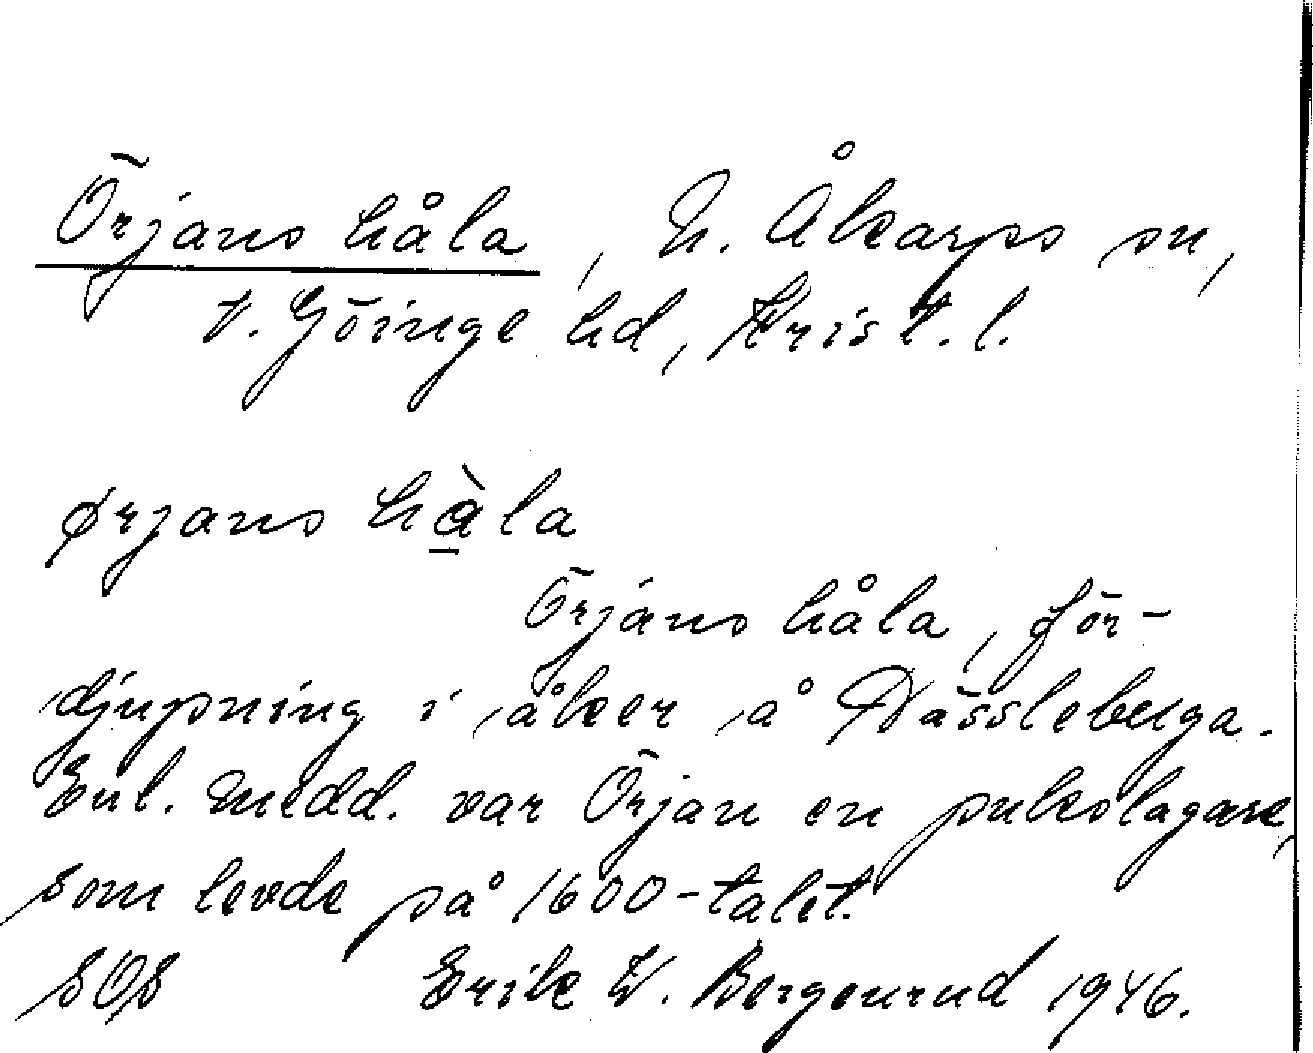 Örjans håla, N. Åkarps sn,
V. Göinge hd, Krist. l.
ørjans hàla
Örjans håla, för-
djupning i åker å Dässleberga.
Enl. medd. var Örjan en pukslagare,
som levde på 1600-talet.
SOS Erik W. Bergenrud 1946.